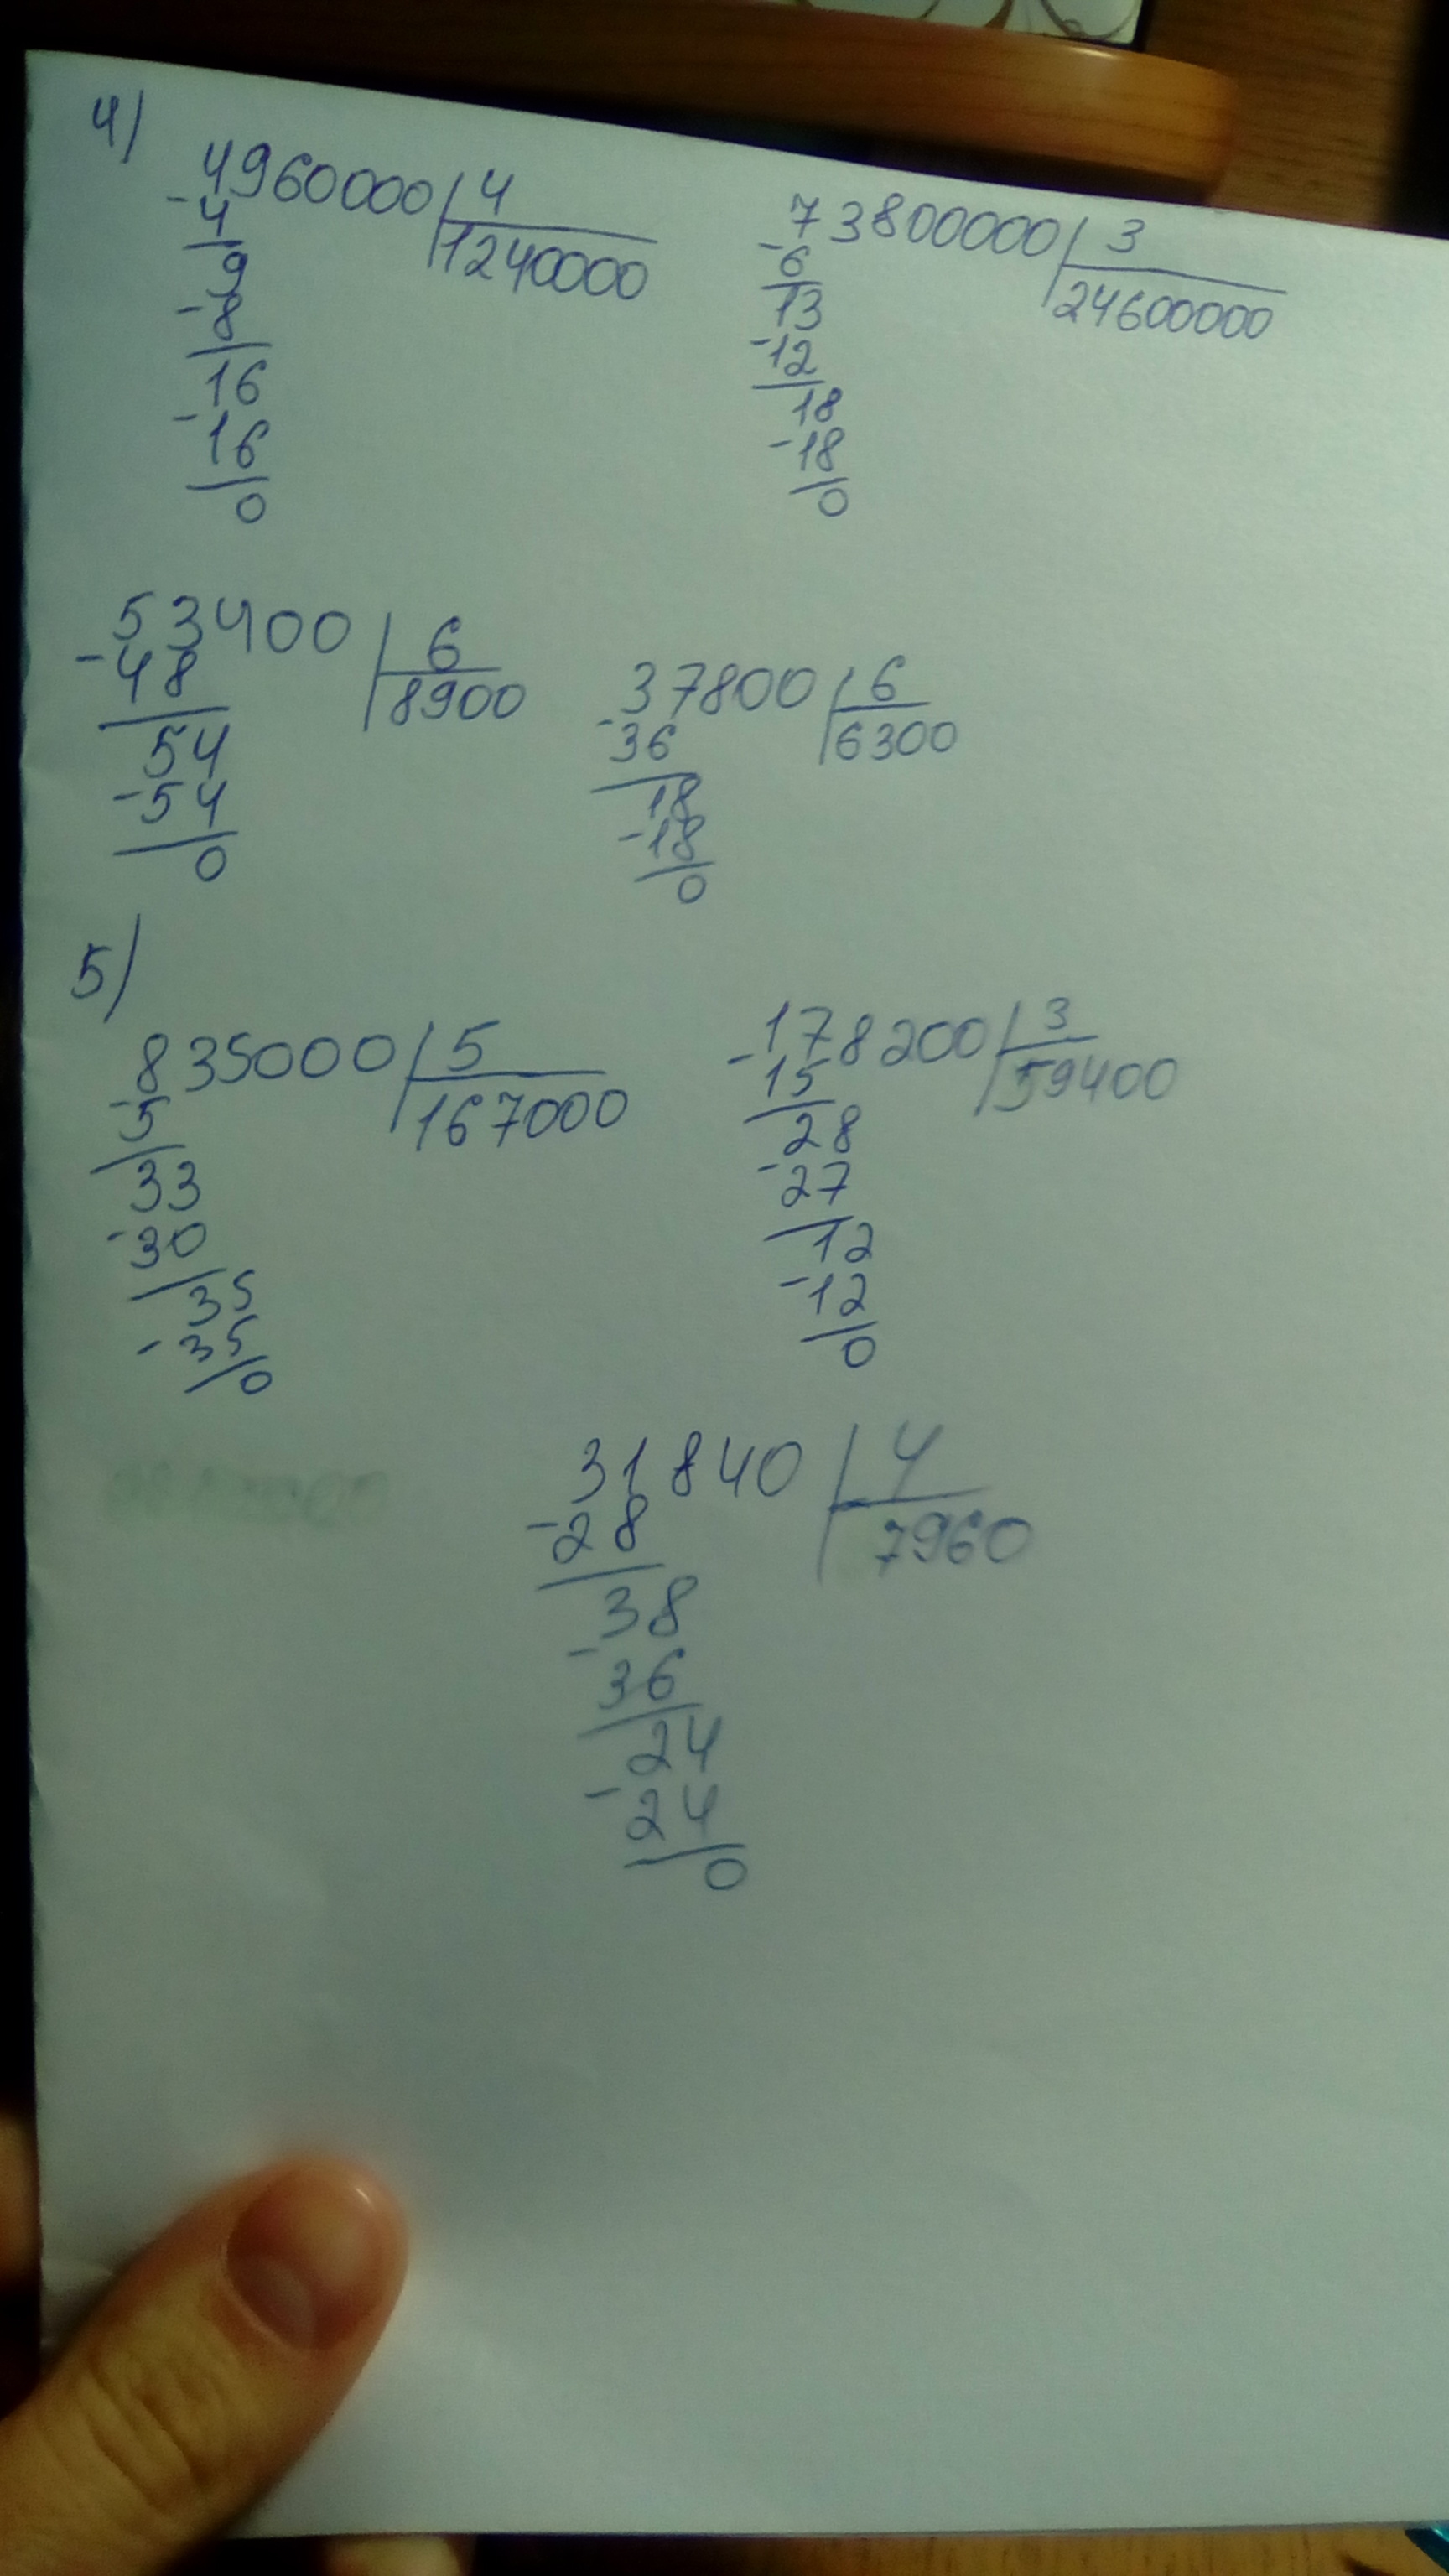 4)
4960000 | 4
-4 | 1240000
9
-8
16
-16
0
73800000 | 3
-6 | 24600000
13
-12
18
-18
0
53400 | 6
-48 | 8900
54
-54
0
37800 | 6
-36 | 6300
18
-18
0
5)
835000 | 5
-5 | 167000
33
-30
35
-35
0
178200 | 3
-15 | 59400
28
-27
12
-12
0
31840 | 4
-28 | 7960
38
-36
24
-24
0